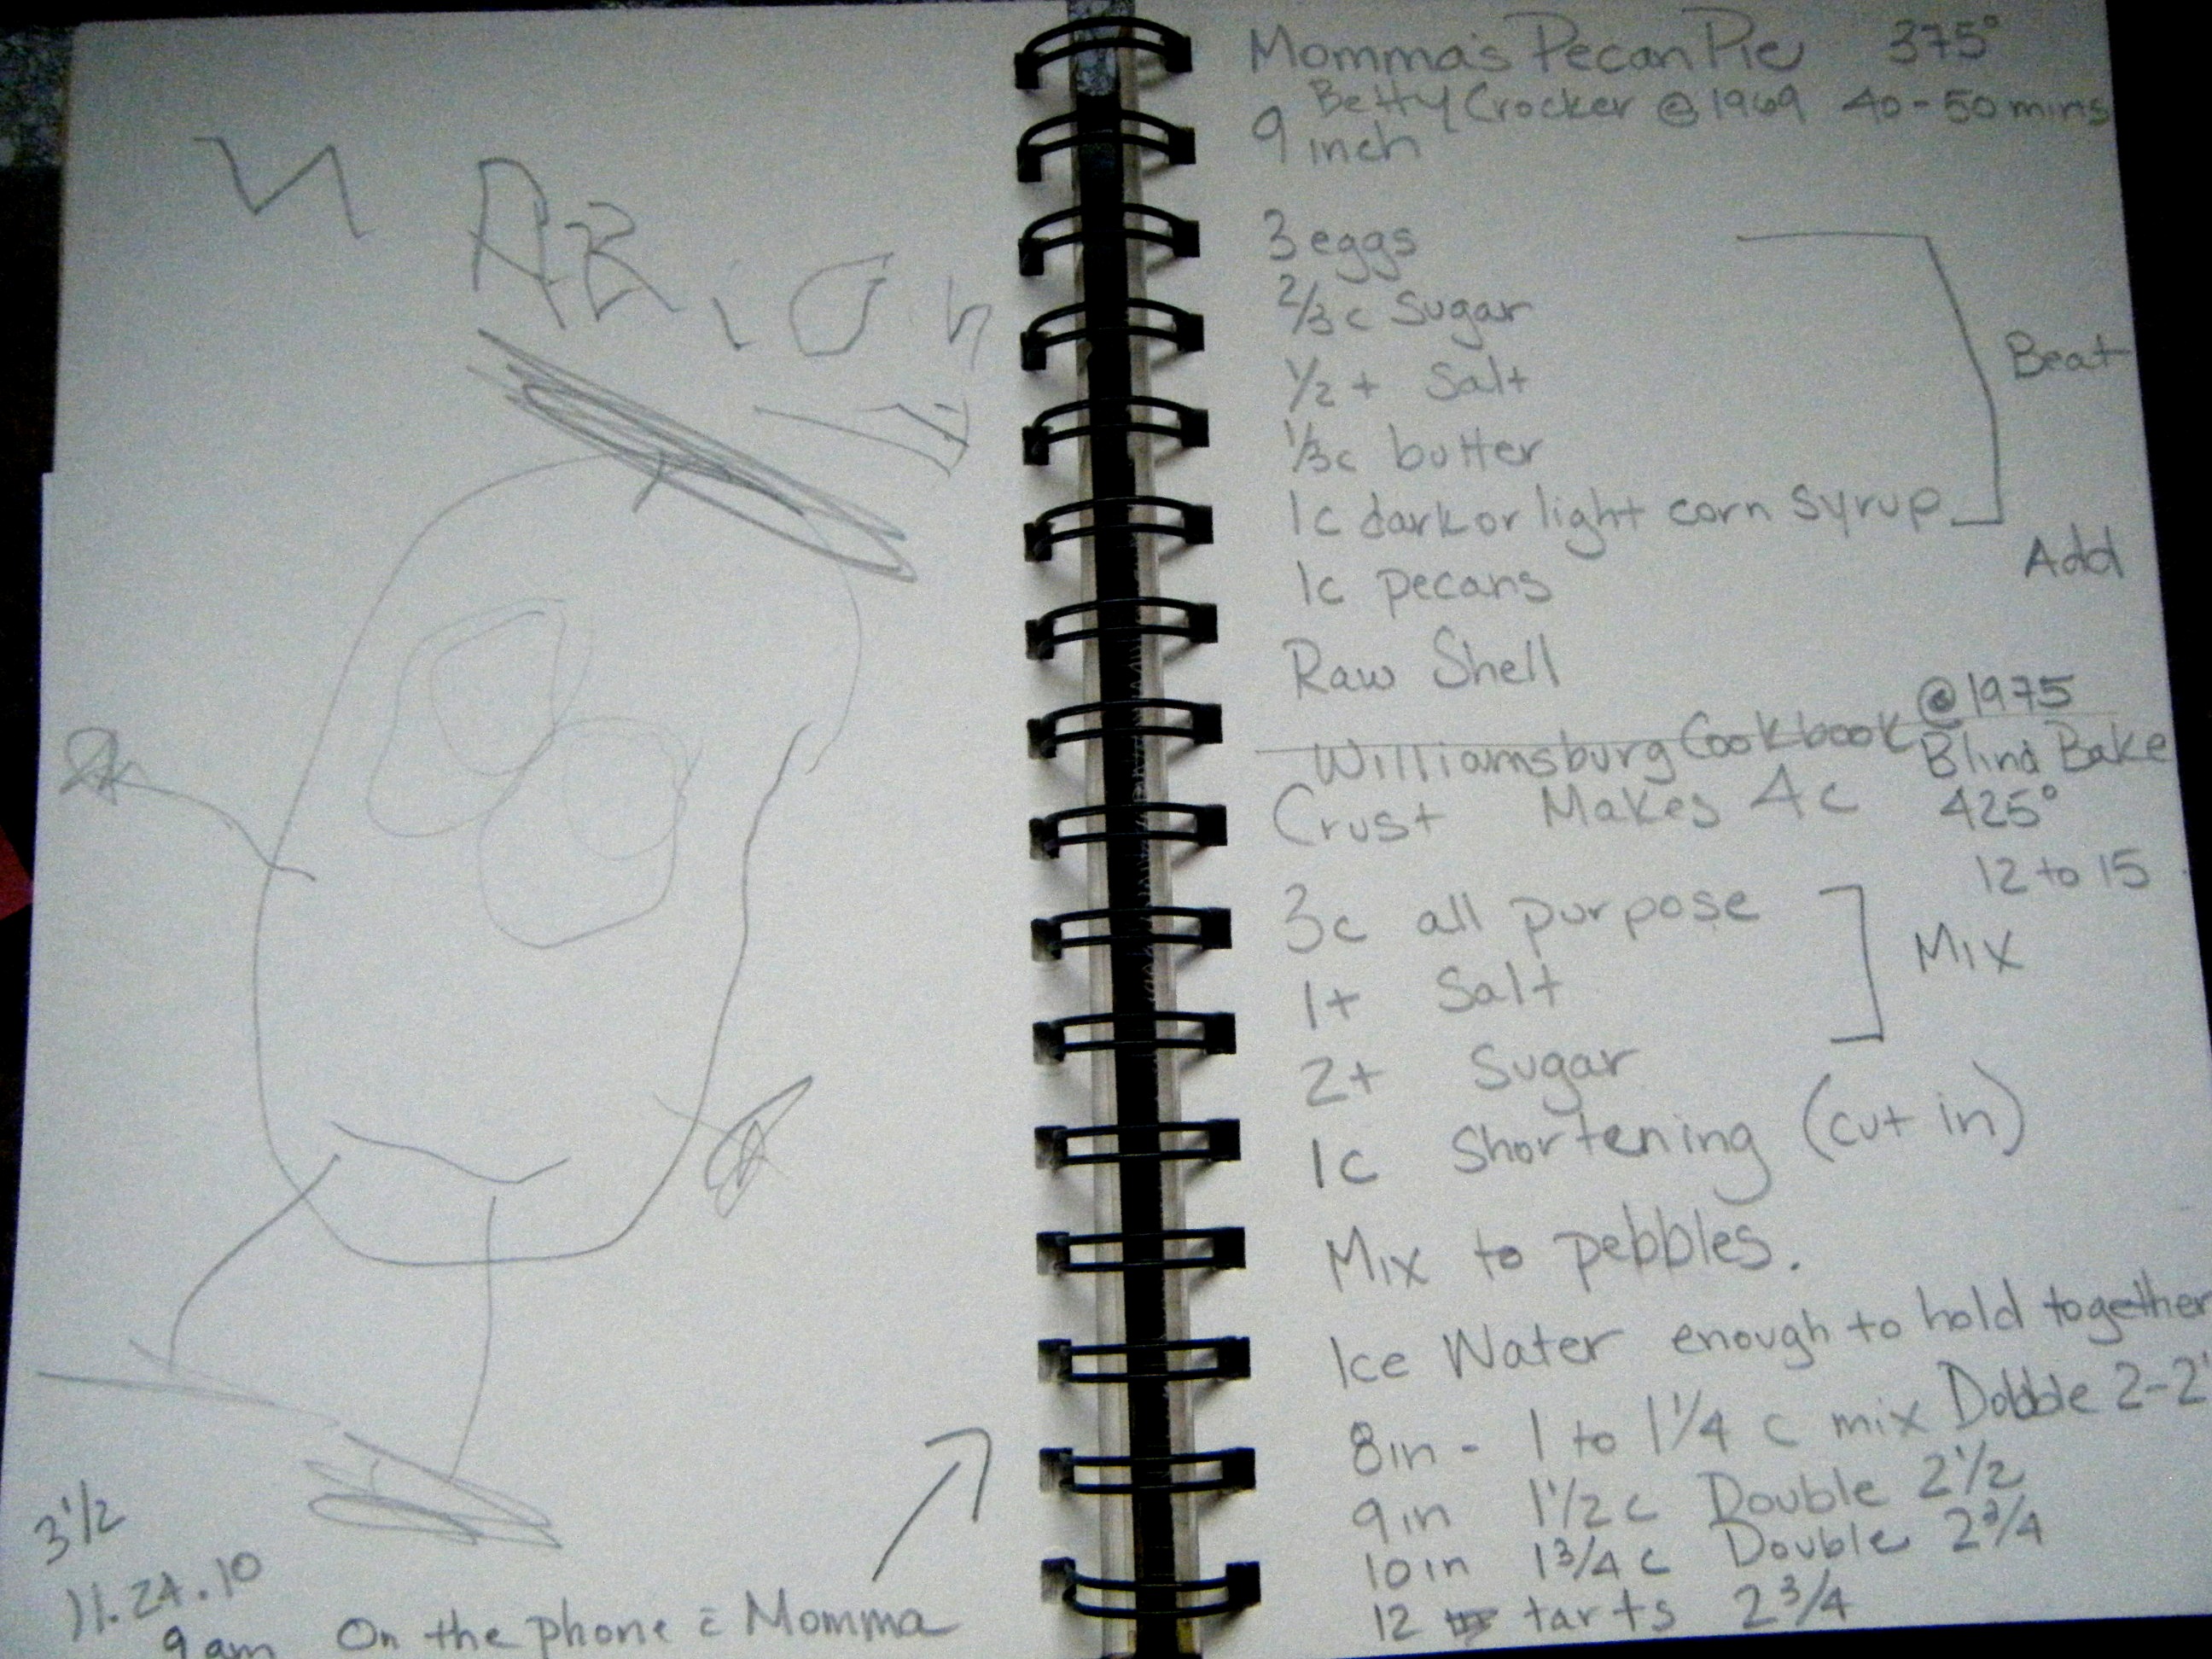 3 1/2
11.24.10
9am On the phone c̄ Momma
Momma's Pecan Pie 375°
Betty Crocker @ 1969 40-50 mins
9 inch
3 eggs
2/3 c Sugar
1/2 t Salt
1/3 c butter
1c dark or light corn syrup
Beat
1c pecans
Add
Raw Shell
Williamsburg Cookbook @ 1975
Crust Makes 4c
Blind Bake
425°
12 to 15
3c all purpose
1t Salt
Mix
2t Sugar
1c Shortening (cut in)
Mix to pebbles.
Ice Water enough to hold together
8in - 1 to 1 1/4 c mix Dobble 2-2
9in 1 1/2 c Double 2 1/2
10in 1 3/4 c Double 2 3/4
12 tarts 2 3/4